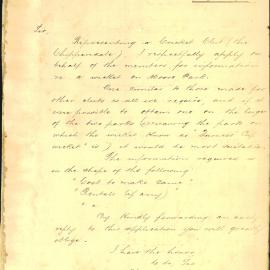 Sir,
Representing a Cricket Club (the
Chippendale) I respectfully apply on
behalf of the members for information
re a wicket on Moore Park.
One similar to those made for
other clubs is all we require, and if it
were possible to obtain one on the larger
of the two parks (excusing the park on
which the wicket known as
wicket" is) it would be most suitable.
The information required is
in the shape of the following
"Cost to make same"
"Rental (if any)"
By kindly forwarding an early
reply to this application you will greatly
oblige.
I have the honor
to be, Sir